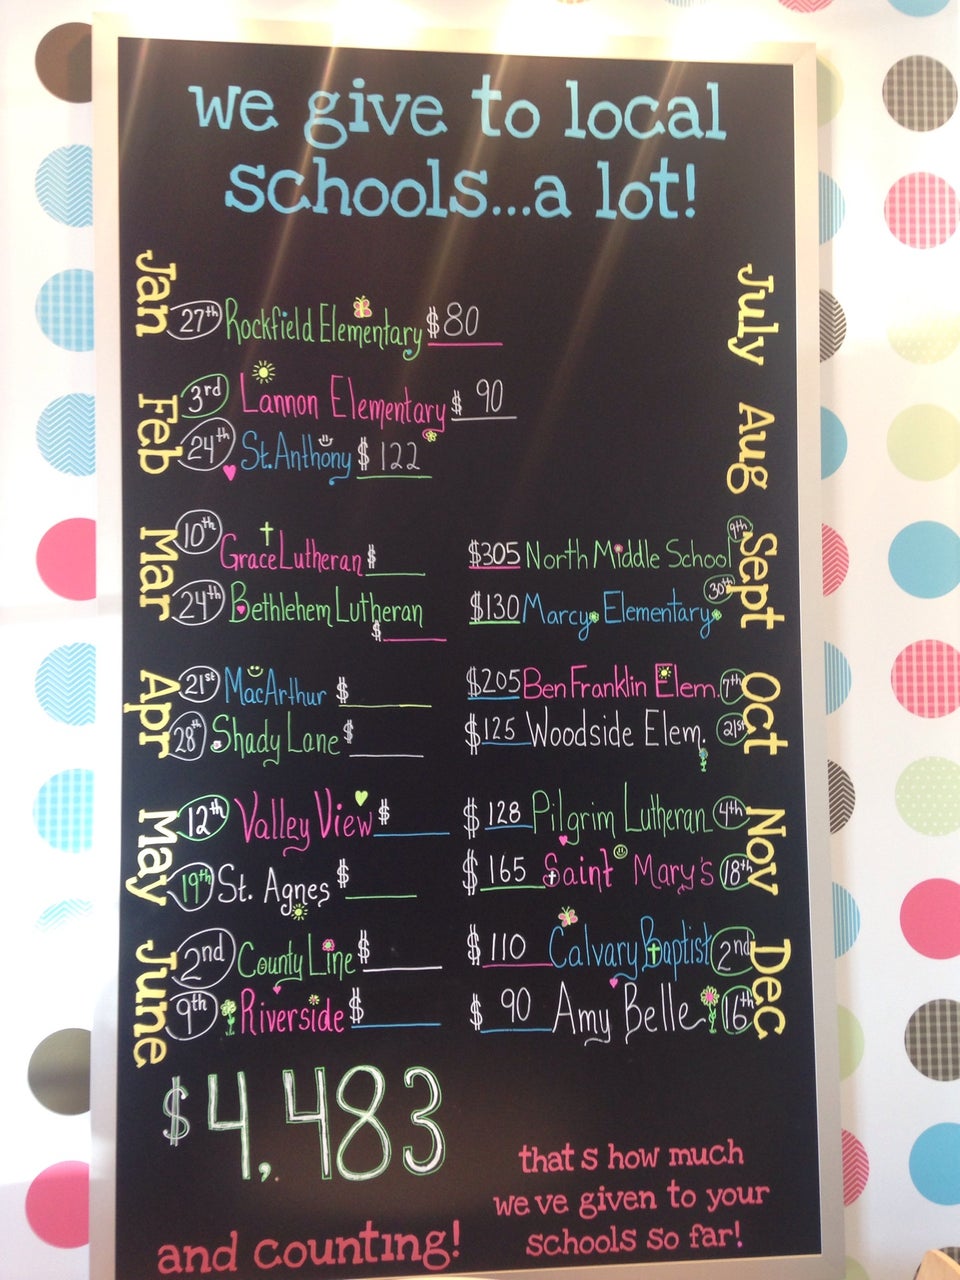 we give to local
schools...a lot!
Jan
27th Rockfield Elementary $80
Feb
3rd Lannon Elementary $ 90
24th St. Anthony $ 122
Mar
10th Grace Lutheran $
24th Bethlehem Lutheran
$
Apr
21st MacArthur $
28th Shady Lane $
May
12th Valley View $
19th St. Agnes $
June
2nd County Line $
9th Riverside $
July
Aug
Sept
$305 North Middle School 9th
$130 Marcy Elementary 30th
Oct
$205 Ben Franklin Elem. 7th
$125 Woodside Elem. 21st
Nov
$ 128 Pilgrim Lutheran 4th
$ 165 Saint Mary's 18th
Dec
$ 110 Calvary Baptist 2nd
$ 90 Amy Belle 16th
$4,483
and counting!
that s how much
we ve given to your
schools so far!